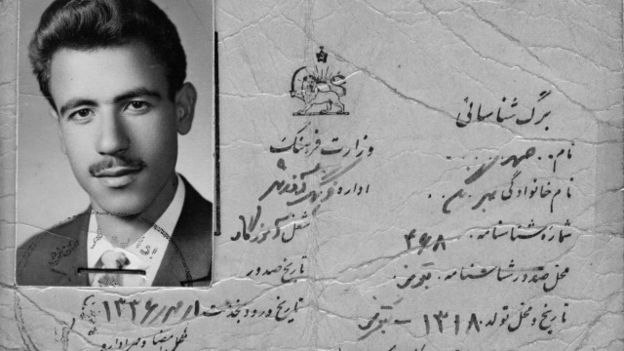 برگ شناسائی
نام . . صمد . . . .
نام خانوادگی بهرنگی . .
شماره شناسنامه . ۴۶۸
محل صدور شناسنامه . تبریز
تاریخ و محل تولد ۱۳۱۸ - تبریز
وزارت فرهنگ
اداره فرهنگ آذرشهر
شغل آموزگار
تاریخ صدور
تاریخ ورود بخدمت ۱ مهر ۱۳۳۶
محل امضا و مهر اداره